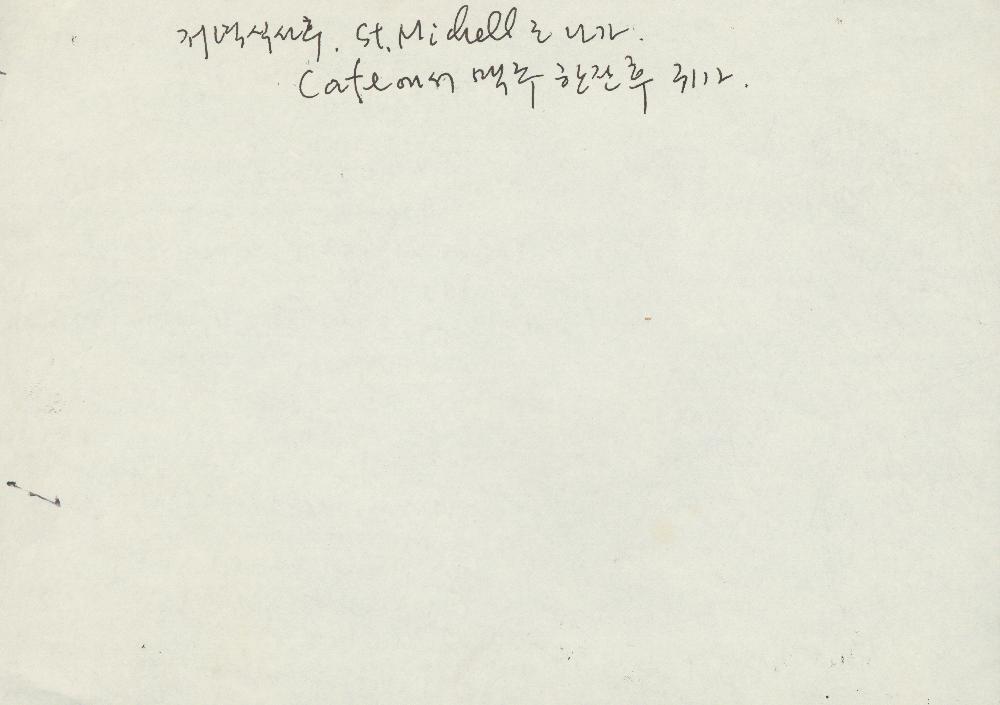 저녁식사후. St. Michell 로 나가.
Cafe에서 맥주 한잔후 귀가.